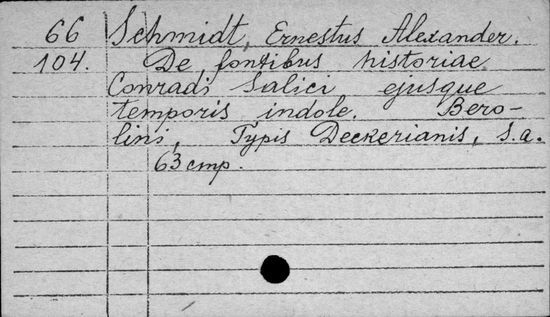 66 Schmidt, Ernestus Alexander.
104. De fontibus historiae
Conradi Salici ejusque
temporis indole. Bero-
lini, Typis Deckerianis, s.a.
63 cmp.